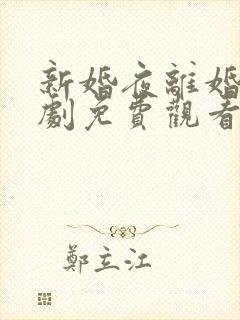 新婚夜離婚
劇免費觀看
鄭立江